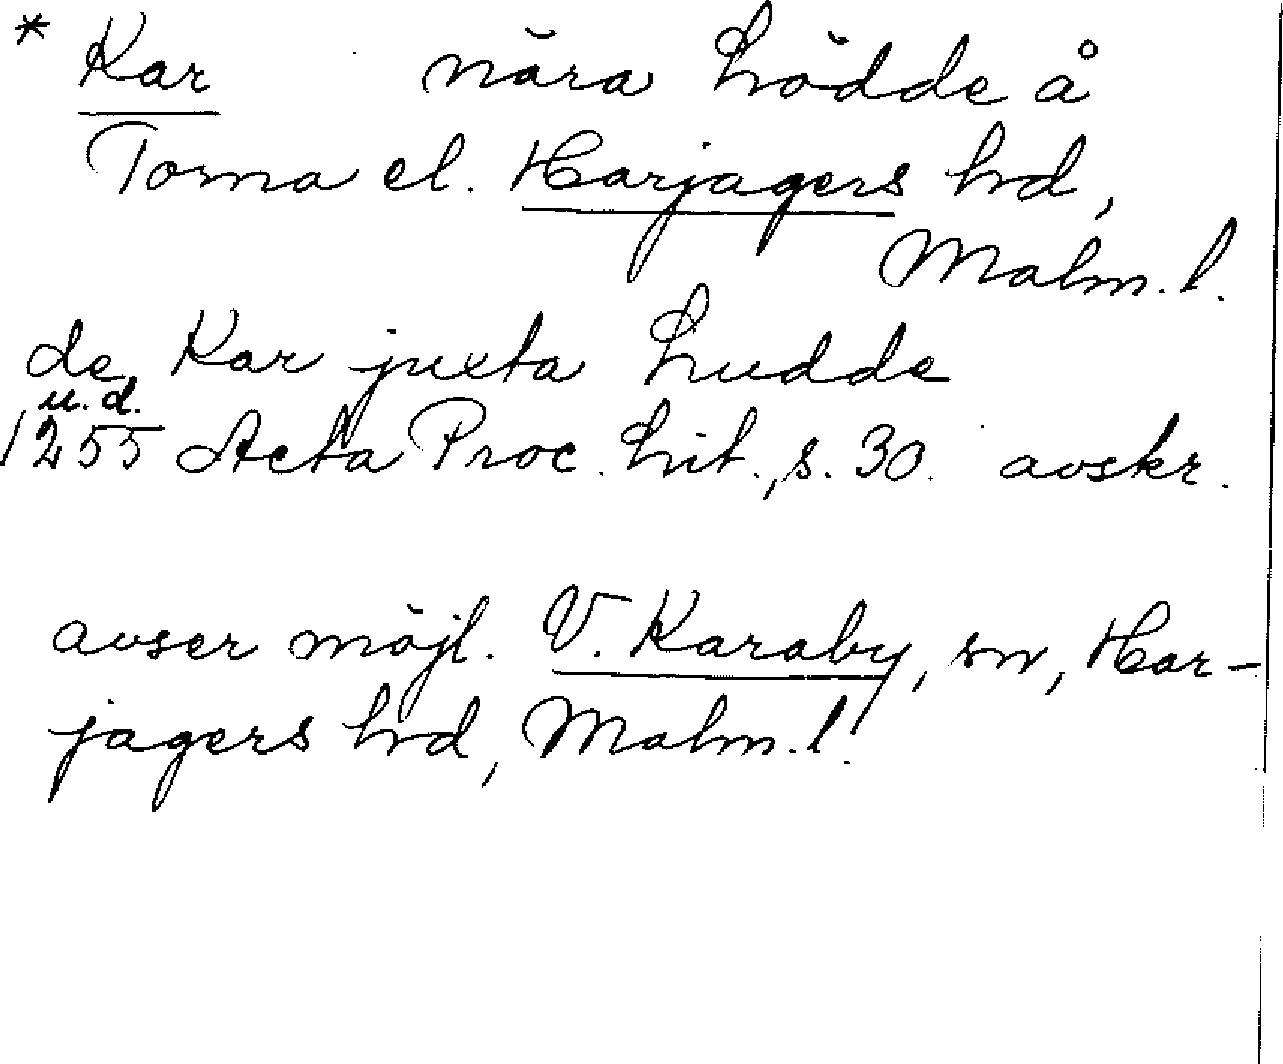 * Kar nära Lödde å
Torna el. Harjagers hd,
Malm. l.
de Kar juxta Ludde
u. d.
1255 Acta Proc. Lit., s. 30. avskr.
avser möjl. V. Karaby, sn, Har-
jagers hd, Malm. l.